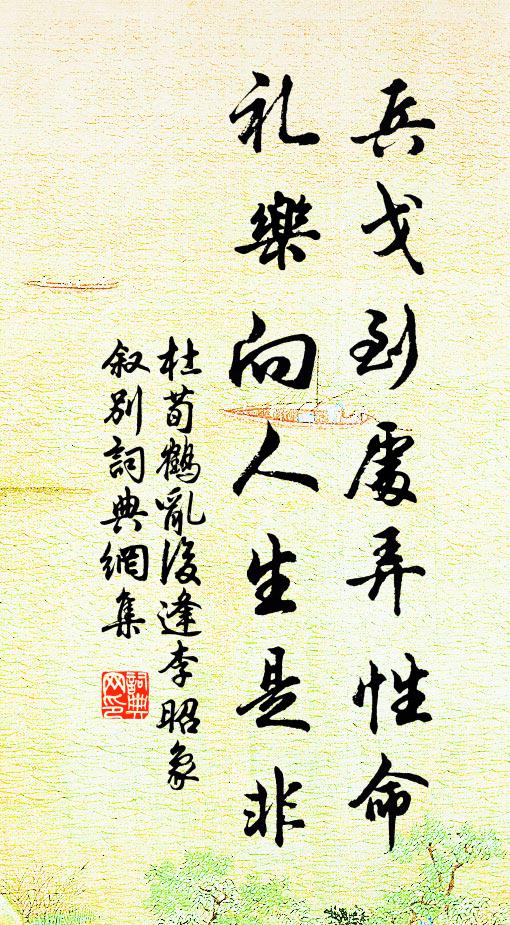 兵戈到處弄性命
礼樂向人生是非
杜荀鶴亂後逢李昭象
叙別詞典網集
詞典
网印